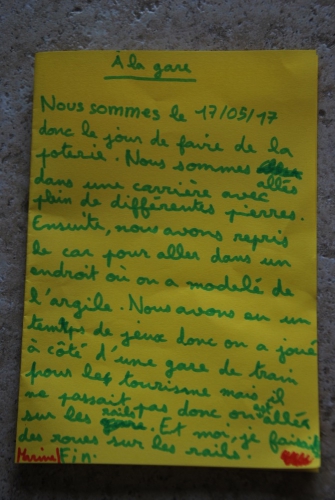 À la gare
Nous sommes le 17/05/17
donc le jour de faire de la
poterie. Nous sommes
allés
dans une carrière avec
plein de différentes pierres.
Ensuite, nous avons repris
le car pour aller dans un
endroit où on a modelé de
l'argile. Nous avons eu un
temps de jeux donc on a joué
à côté d'une gare de train
pour les tourisme mais il
ne passait pas donc on allés
sur les rails. Et moi, je faisait
des roues sur les rails.
Marine Fin.